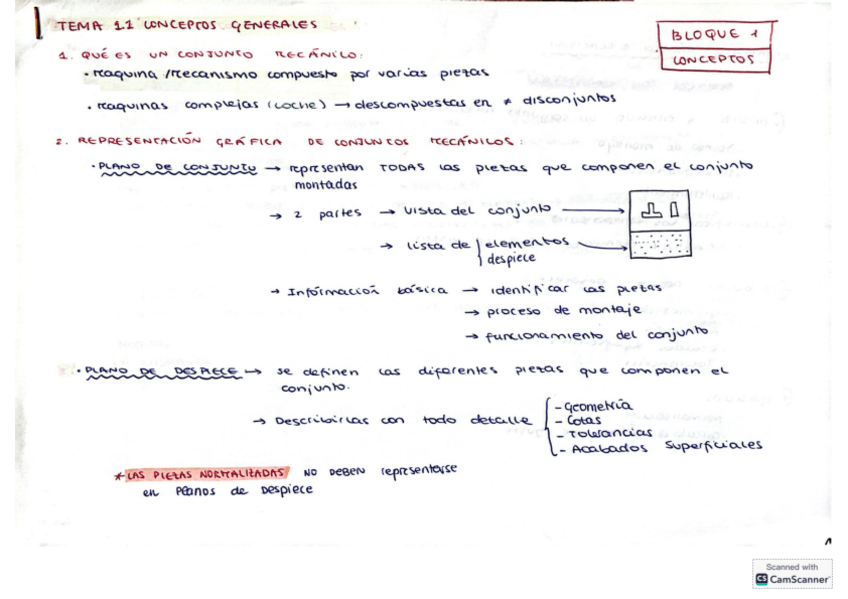 TEMA 1.1 CONCEPTOS GENERALES
BLOQUE 1
CONCEPTOS
1. QUÉ ES UN CONJUNTO MECÁNICO:
· Maquina /Mecanismo compuesto por varias piezas
· Maquinas complejas (coche) → descompuestas en ≠ disconjuntos
2. REPRESENTACIÓN GRÁFICA DE CONJUNTOS MECÁNICOS:
· PLANO DE CONJUNTO → representan TODAS las piezas que componen el conjunto
montadas
→ 2 partes → vista del conjunto
→ lista de elementos
despiece
→ Información básica → identificar las piezas
→ proceso de montaje
→ funcionamiento del conjunto
· PLANO DE DESPIECE → se definen las diferentes piezas que componen el
conjunto.
→ Describirlas con todo detalle
- Geometría
- Cotas
- Tolerancias
- Acabados Superficiales
* LAS PIEZAS NORMALIZADAS NO DEBEN representarse
en Planos de Despiece
Scanned with
CS CamScanner